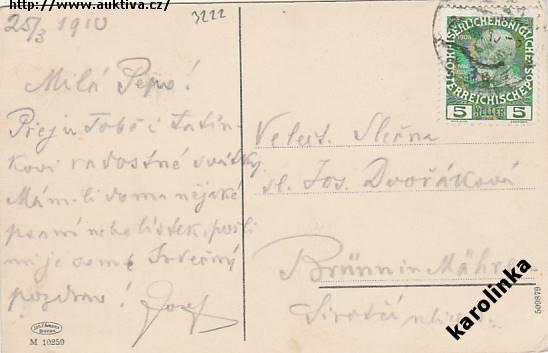 http://www.auktiva.cz/
3222
25/3 1910
Milá Pepo!
Přeji Tobě i Tatín-
kovi radostné svátky.
Mám-li doma nějaké
psaní nebo lístek, pošli
mi je sem. Srdečný
pozdrav! Josef
KAISERLICHE KÖNIGLICHE
ÖSTERREICHISCHE POST
1908
5 HELLER 5
Velect. Slečna
sl. Jos. Dvořáková
Brünn in Mähren
Sirotčí
M 10259
509879
karolinka